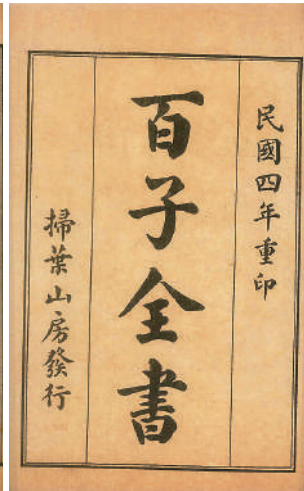 民國四年重印
百子全書
掃葉山房發行